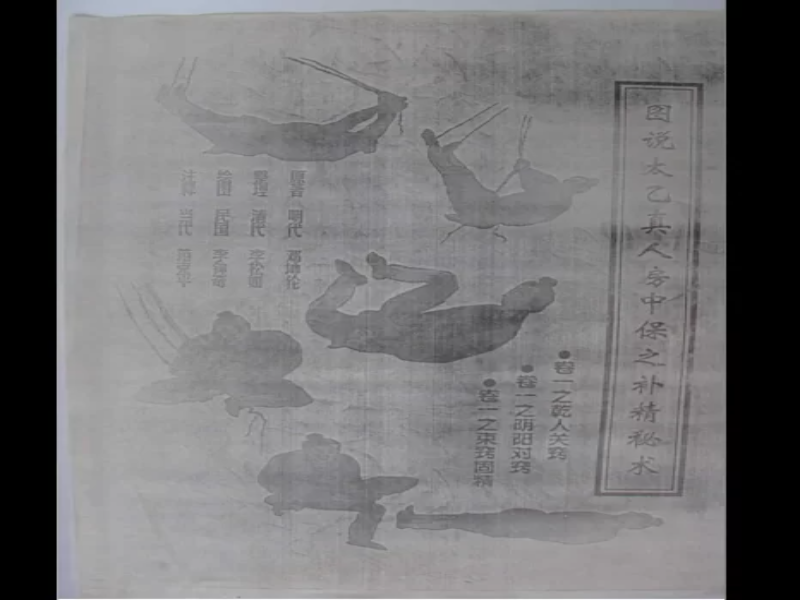 图说太乙真人房中保之补精秘术
●卷一之乾人关窍
●卷一之阴阳对窍
●卷一之束窍固精
原著 明代 邓坤伦
整理 清代 李松
绘图 民国
注释 当代